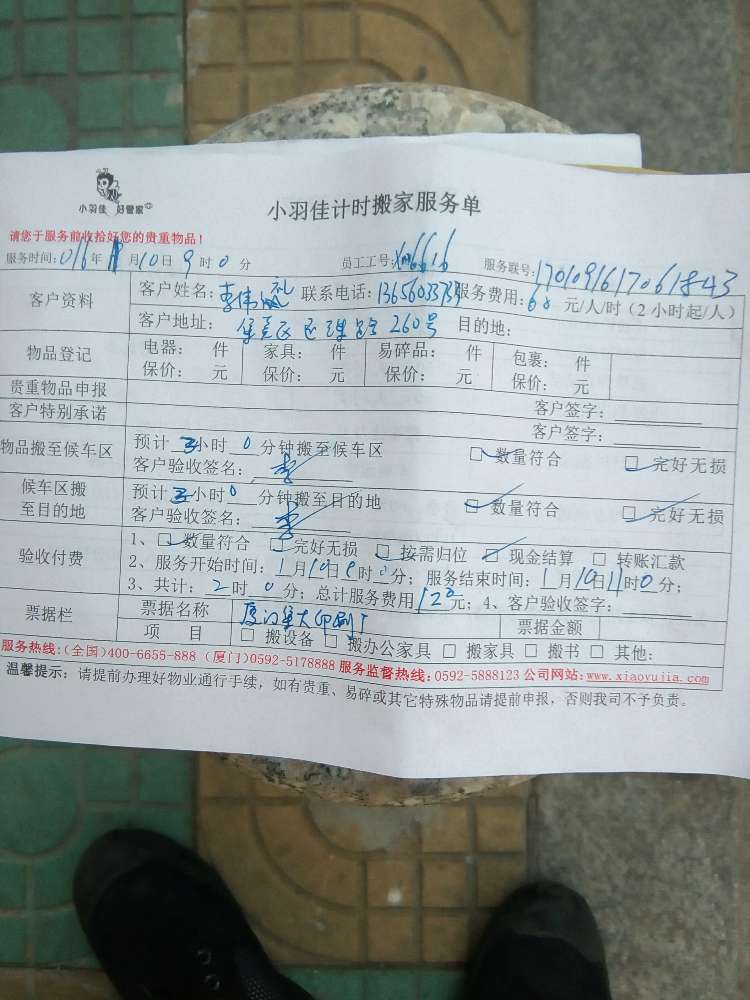 小羽佳 好管家
小羽佳计时搬家服务单
请您于服务前收拾好您的贵重物品!
服务时间: 016年 月10日9时0分 员工工号: 6616 服务联号:1701091617061843
客户资料 客户姓名:李伟 联系电话: 服务费用:60元/人/时(2小时起/人)
客户地址: 260号 目的地:
物品登记 电器: 件 家具: 件 易碎品: 件 包裹: 件
保价: 元 保价: 元 保价: 元 保价: 元
贵重物品申报 客户签字:
客户特别承诺 客户签字:
物品搬至候车区 预计 小时0分钟搬至候车区 数量符合 完好无损
客户验收签名:李
候车区搬至目的地 预计 小时0分钟搬至目的地 数量符合 完好无损
客户验收签名:李
验收付费 1、数量符合 完好无损 按需归位 现金结算 转账汇款
2、服务开始时间:1月10日 时0分;服务结束时间:1月10日11时0分;
3、共计:2时0分;总计服务费用120元;4、客户验收签字:
票据栏 票据名称 厦门 大印刷厂 票据金额
项目 搬设备 搬办公家具 搬家具 搬书 其他:
服务热线:(全国)400-6655-888 (厦门)0592-5178888 服务监督热线:0592-5888123 公司网站:www.xiaoyujia.com
温馨提示:请提前办理好物业通行手续,如有贵重、易碎或其它特殊物品请提前申报,否则我司不予负责。